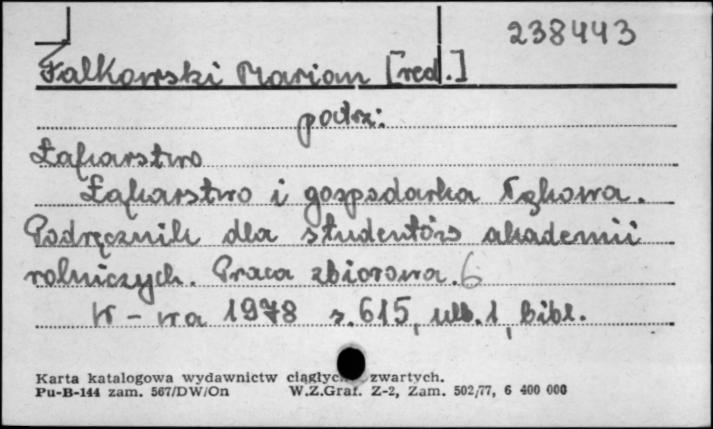 238443
Falkowski Marian [red.]
patrz:
Łąkarstwo
Łąkarstwo i gospodarka łąkowa.
Podręcznik dla studentów akademii
rolniczych. Praca zbiorowa. 6
W-wa 1978 s. 615, nlb. 1, bibl.
Karta katalogowa wydawnictw ciągłych zwartych.
Pu-B-144 zam. 567/DW/On W.Z.Graf. Z-2, Zam. 502/77, 6 400 000